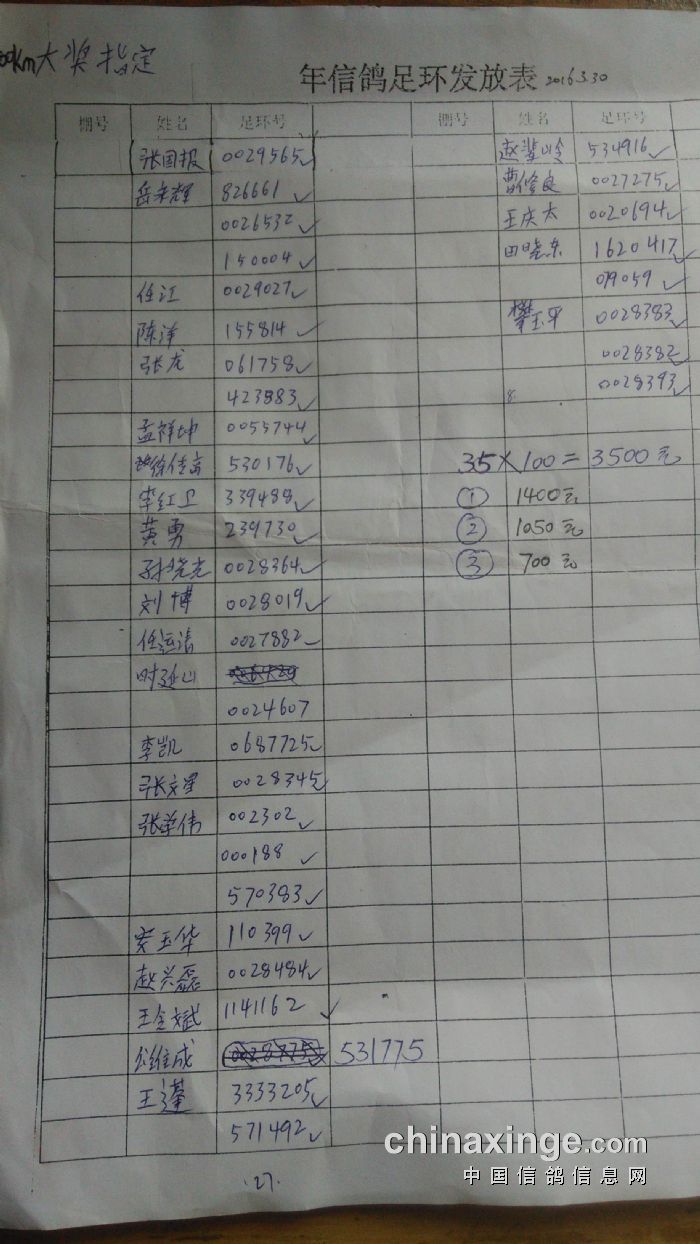 00km大奖指定
年信鸽足环发放表 2016.3.30
棚号 姓名 足环号 棚号 姓名 足环号
张国报 0029565✓
岳来辉 826661✓
0026532✓
150004✓
任江 0029027✓
陈洋 155814✓
张龙 061758✓
423883✓
孟祥坤 0055744✓
徐传富 530176✓
李红卫 339488✓
黄勇 239730✓
孙晓光 0028364✓
刘博 0028019✓
任运清 0027882✓
时延山
0024607
李凯 0687725✓
张文星 0028345✓
张学伟 002302✓
000188✓
570383✓
窦玉华 110399✓
赵兴磊 0028484✓
王金斌 1141162✓
维成 0028775 531775
王谨 3333205✓
571492✓
27.
赵 岭 534916✓
曹修良 0027275✓
王庆太 0020694✓
田晓东 1620417✓
019059✓
樊玉平 0028383✓
0028382✓
8 0028393✓
35×100=3500元
① 1400元
② 1050元
③ 700元
chinaxinge.com
中国信鸽信息网